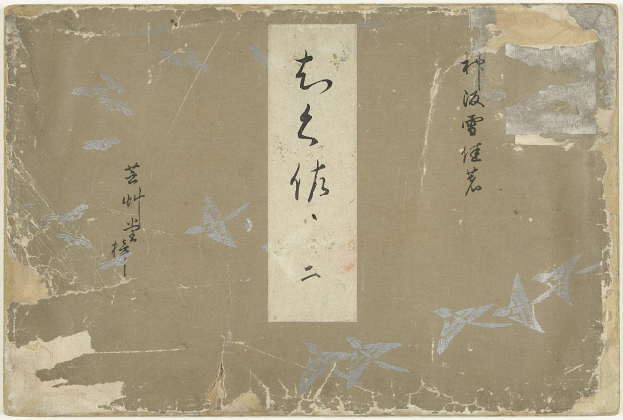 神坂雪佳著
ちく佐 二
芸艸堂梓